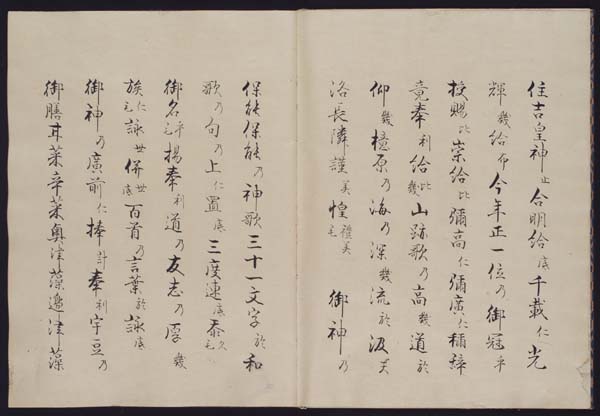 住吉皇神止合明給底千載仁光
輝幾給布今年正一位乃御冠乎
授賜比崇給比彌高仁彌廣仁稱辞
竟奉利給比幾山跡歌乃高幾道於
仰幾橿原乃海乃深幾流於汲美
洛長隣謹美惶禮美毛御神乃
保能保能乃神歌三十一文字於和
歌乃句乃上仁置底三度連底泰久毛
御名乎毛揚奉利道乃友志乃厚幾
族仁毛詠世併世底百首乃言葉於詠底
御神乃廣前仁捧計奉利宇豆乃
御膳甘菜辛菜奥津藻邊津藻